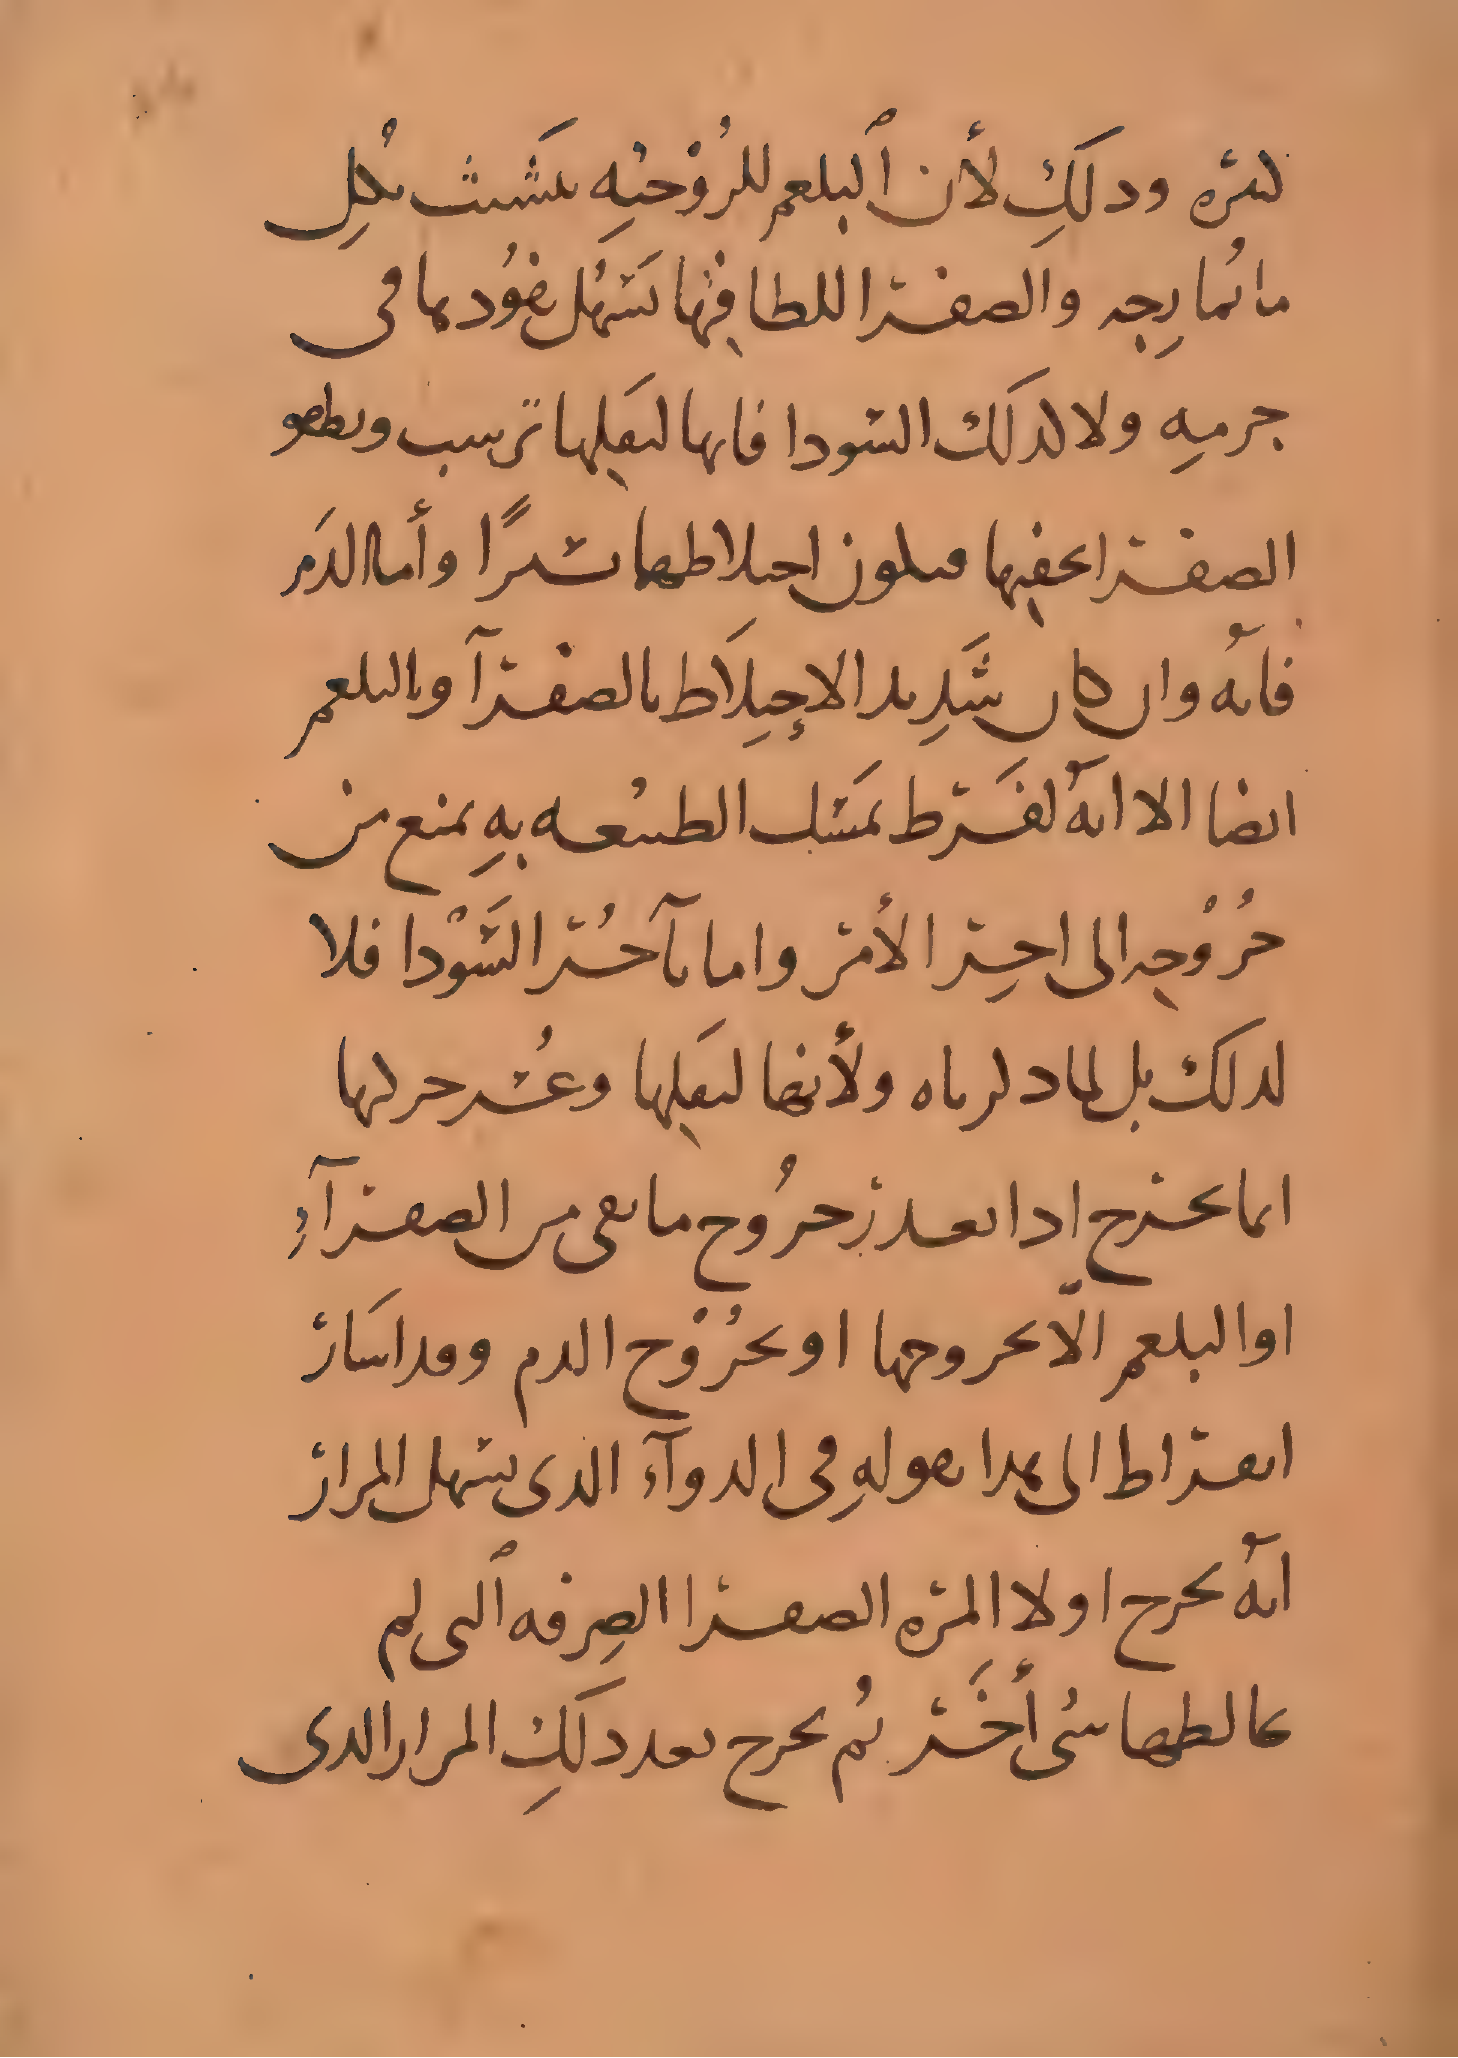 كثيره وذلك لأن البلغم للزوجته يتشبث بكل
ما يمازجه والصفرا للطافتها يسهل نفوذها في
جرمه ولا كذلك السودا فانها لثقلها ترسب وتطفو
الصفرا لخفتها فيكون اختلاطهما يسيرًا وأما الدم
فانه وان كان شديد الاختلاط بالصفرآ وبالبلغم
ايضا الا انه لفرط تمسك الطبيعه به يمنع من
خروجه الى اخر الأمر واما تآخر السودا فلا
لذلك بل لما ذكرناه ولأنها لثقلها وعسر حركتها
انما يخرج اذا تعذر خروج ما بقي من الصفرآء
او البلغم الّا بخروجها او بخروج الدم وقد اشار
ابقراط الى هذا بقوله في الدوآء الذي يسهل المرار
انه يخرج اولا المره الصفرا الصرفه التي لم
يخالطها شي أخر ثم يخرج بعد ذلك المرار الذي